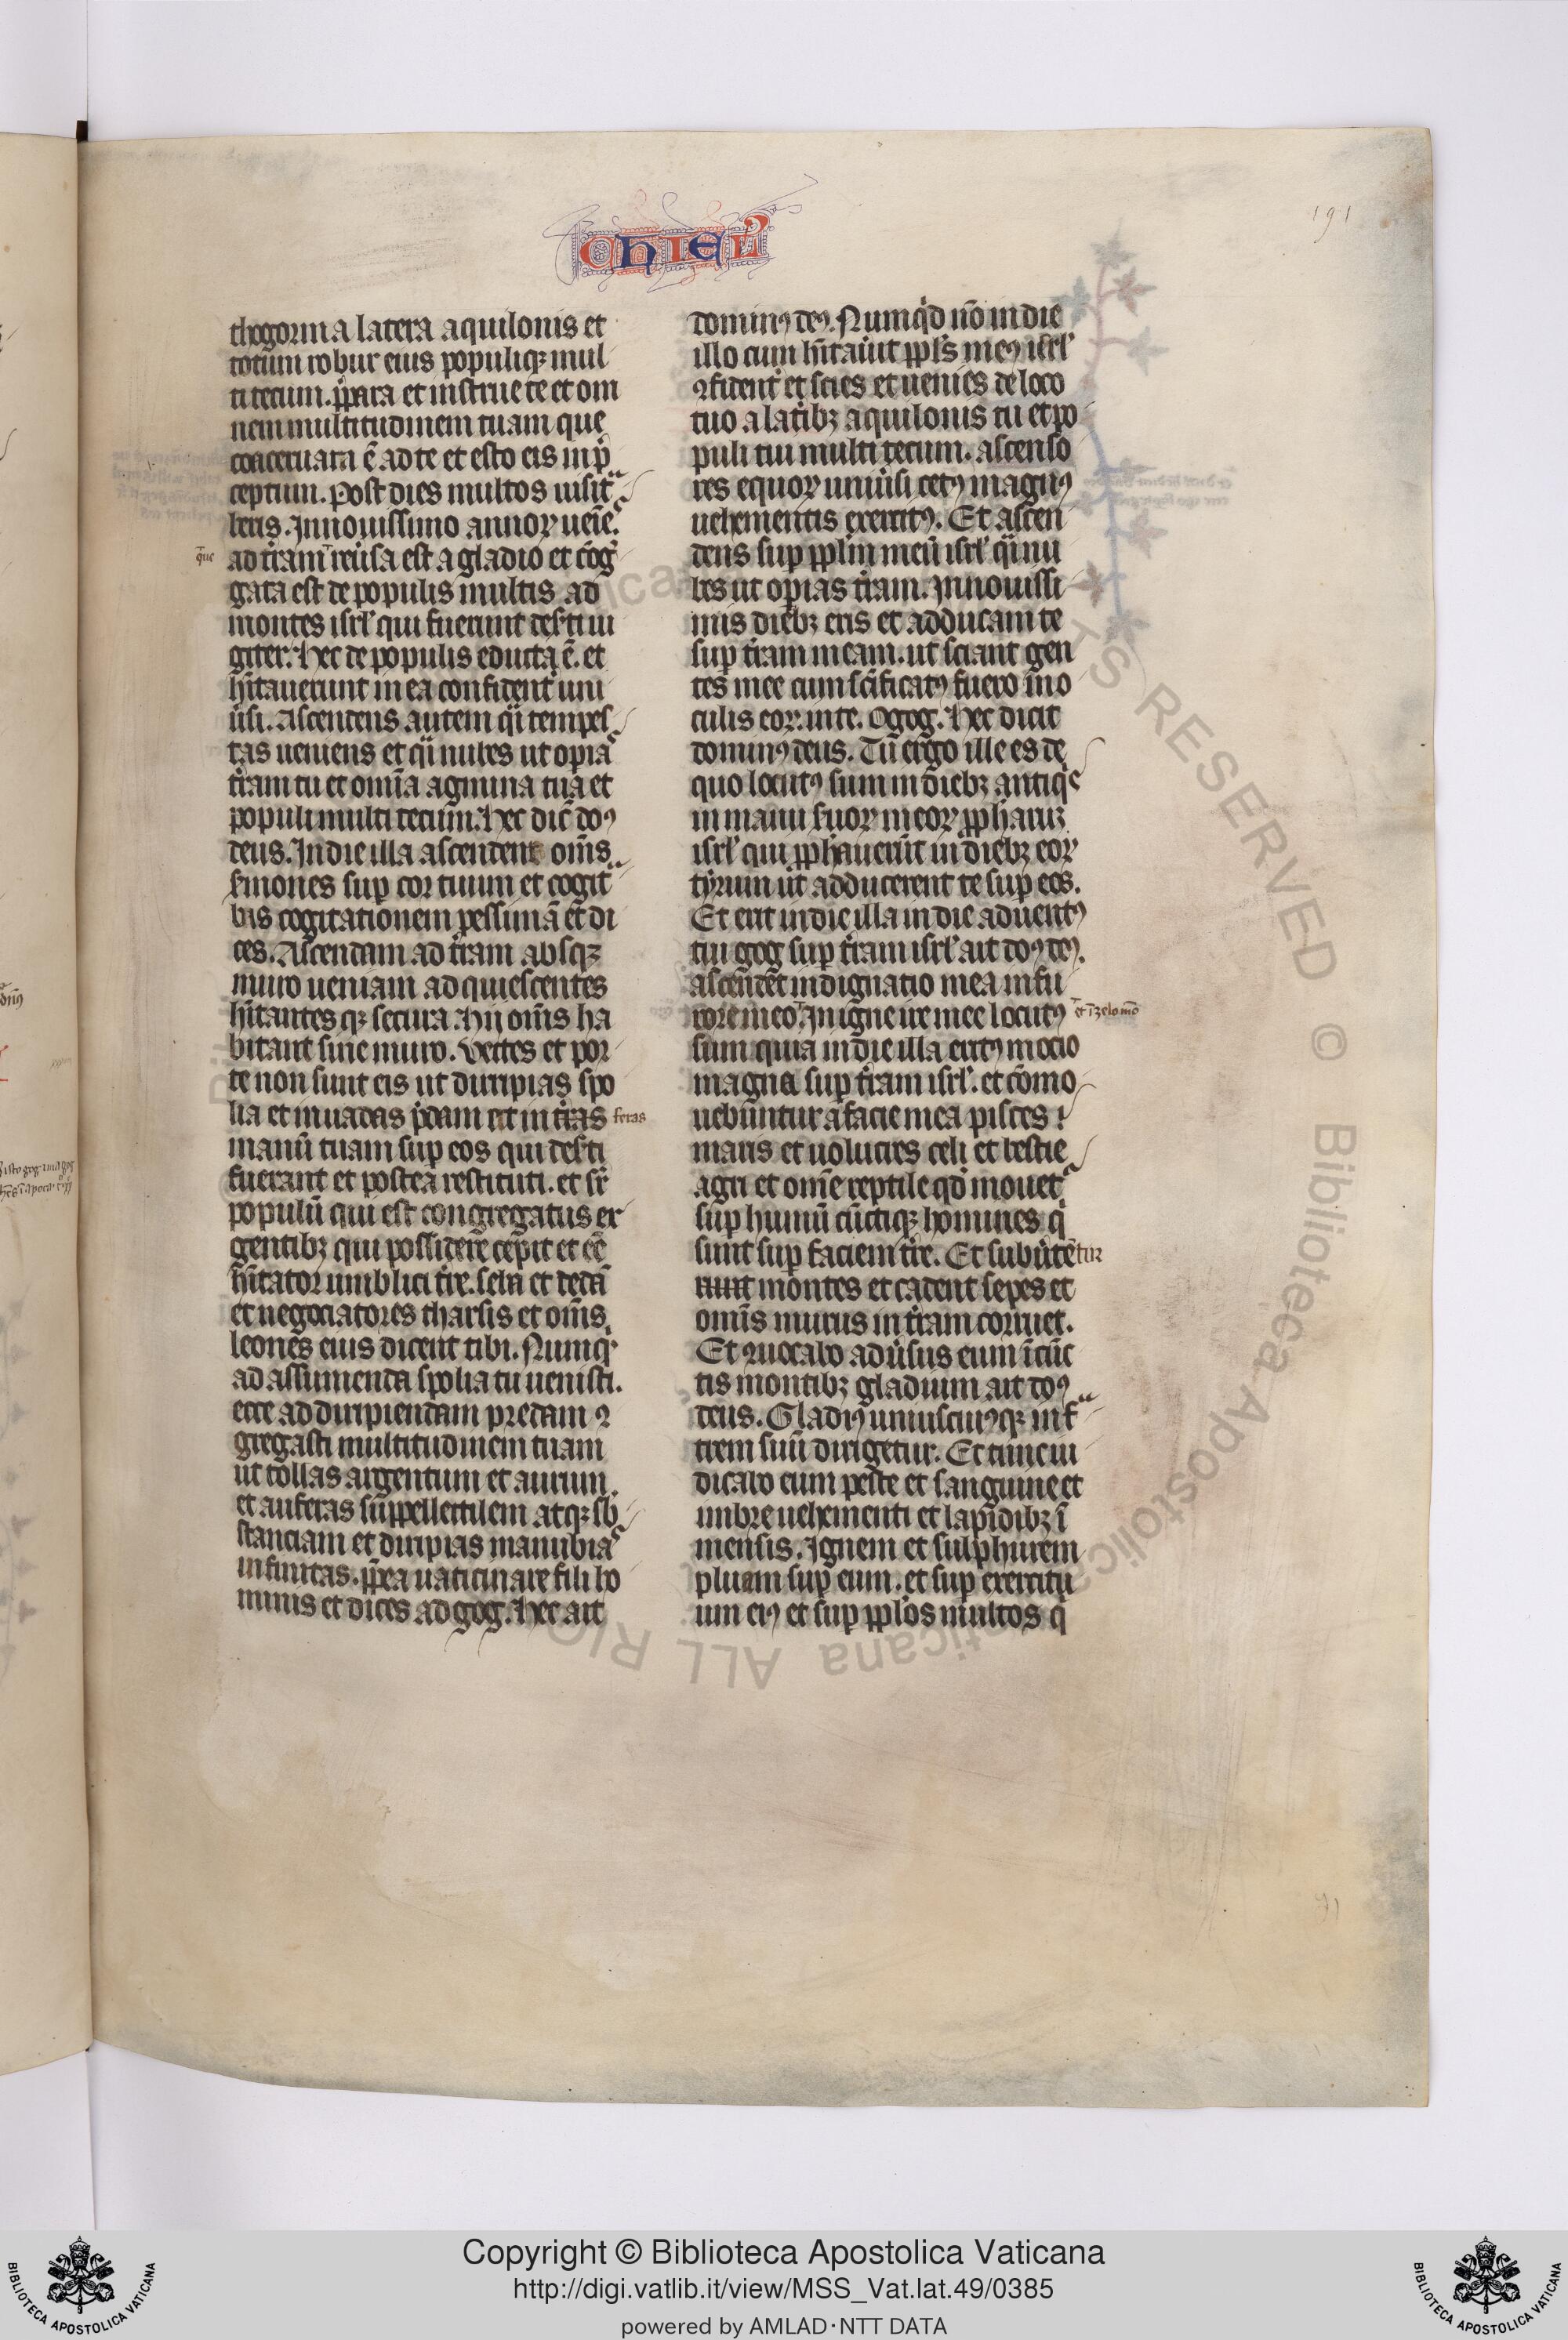 CHIEL
191
thogorma latera aquilonis et
totum robur eius populiq; mul
ti tecum. p̄para et instrue te et om
nem multitudinem tuam que
coaceruata ē ad te et esto eis in p̄
ceptum. Post dies multos uisita
beris. In nouissimo annoꝝ uenies
que
ad t̄ram reūsa est a gladio et cōg̃
gata est de populis multis ad
montes isrl̓ qui fuerunt deserti iu
giter. Hec de populis educta ē. et
hītauerunt in ea confident̓ uni
ūsi. Ascendens autem q̄i tempes
tas uenies et q̄i nubes ut opias
t̄ram tu et omīa agmina tua et
populi multi tecum. Hec dic̄ dōs
deus. In die illa ascendent om̄s
s̄mones sup̱ cor tuum et cogita
bis cogitationem pessimā et di
ces. Ascendam ad t̄ram absq;
muro ueniam ad quiescentes
hītantesq; secura. Hij om̄s ha
bitant sine muro. Vectes et por
te non sunt eis ut diripias spo
lia et inuadas p̄dam et in t̄ras feras
manū tuam sup̱ eos qui deserti
fuerant et postea restituti. et sr̄
populū qui est congregatus ex
gentibꝫ qui possidere cep̄it et eē
hītator umblici t̄re. seba et dedā
et negociatores tharsis et om̄s
leones eius dicent tibi. Numq̓
ad assumenda spolia tu uenisti.
ecce ad diripiendam predam ꝯ
gregasti multitudinem tuam
ut tollas argentum et aurum
et auferas suppellectilem atq; sb̄
stanciam et diripias manubias
infinitas. pp̄ea uaticinare fili ho
minis et dices ad gog. Hec ait
dominꝰ deꝰ. Numq̓d nō in die
illo cum hītaūit ppl̄s meꝰ isrl̓
ꝯfident̓ et scies et uenies de loco
tuo a lat̓ibꝫ aquilonis tu et po
puli tui multi tecum. ascenso
res equoꝝ uniūsi cetꝰ magnꝰ
uehementis exercitꝰ. Et ascen
dens sup̱ pplm̄ meū isrl̓ q̄i nu
bes ut opias t̄ram. In nouissi
mis diebꝫ eris et adducam te
sup̱ t̄ram meam. ut sciant gen
tes mee cum sc̄ificatꝰ fuero in o
culis eoꝝ. in te. O gog. Hec dicit
dominꝰ deus. Tu ergo ille es de
quo locutꝰ sum in diebꝫ antiq̓s
in manu suoꝝ meoꝝ ppharuꝫ
isrl̓ qui pphauerūt in diebꝫ eoꝝ
tyrum ut adducerent te sup̱ eos.
Et erit in die illa in die aduentꝰ
tui gog sup̱ t̄ram isrl̓ ait dōs deꝰ.
ascendet indignatio mea in fu
rore meo. In igne ire mee locutꝰ et ī zelo mō
sum quia in die illa erit cōmocio
magna sup̱ t̄ram isrl̓. et cōmo
uebūntur a facie mea pisces
maris et uolucres celi et bestie
agri et omē reptile qd̄ mouet̓
sup̱ humū cūctiq; homines q̓
sunt sup̱ faciem t̄re. Et subūtētur
montes et cadent sepes et
om̄is murus in t̄ram corruet.
Et ꝯuocabo adūsus eum ī cūc
tis montibꝫ gladium ait dōs
deus. Gladiꝰ uniuscuiꝰq; in fr̄a
trem suū dirigetur. Et tunc iu
dicabo eum peste et sanguine et
imbre uehementi et lapidibꝫ ī
mensis. Ignem et sulphurem
pluam sup̱ eum. et sup̱ exercitu
um eiꝰ et sup̱ pplōs multos q̓
Copyright © Biblioteca Apostolica Vaticana
http://digi.vatlib.it/view/MSS_Vat.lat.49/0385
powered by AMLAD·NTT DATA
BIBLIOTECA APOSTOLICA VATICANA
BIBLIOTECA APOSTOLICA VATICANA